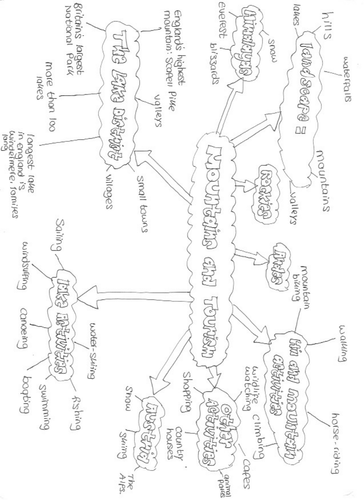 Mountains and Tourism
The Lake District
England's highest
mountain: Scafell Pike
valleys
small towns
villages
Britain's largest
National Park
more than 100
lakes
longest lake
in england is
windermere: 10miles
long
snow
blizzards
Everest
landscape =
hills
lakes
waterfalls
mountains
valleys
Rockies
Andes
hill and mountain
activities
mountain
biking
walking
horse-riding
climbing
wildlife
watching
other
activities
shopping
country
houses
cafes
lake activities
Sailing
windsurfing
canoeing
boating
swimming
fishing
water-skiing
snow
skiing
The
Alps